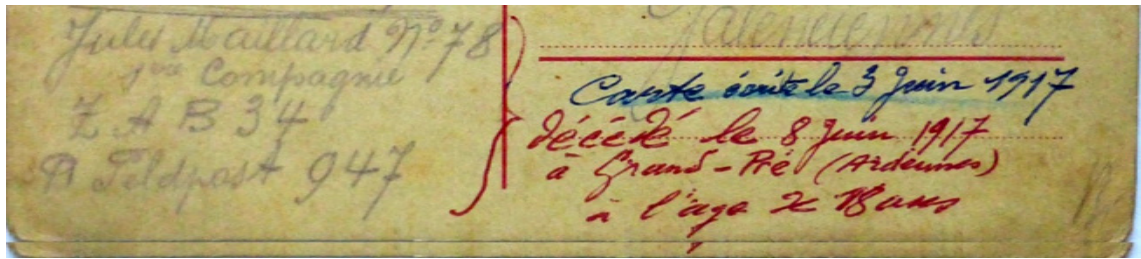 Jules Maillard Nº 78
1ère Compagnie
Z A B 34
B Feldpost 947
Valenciennes
Carte écrite le 3 Juin 1917
décédé le 8 Juin 1917
à Grand-Pré (Ardennes)
à l'age de 18 ans